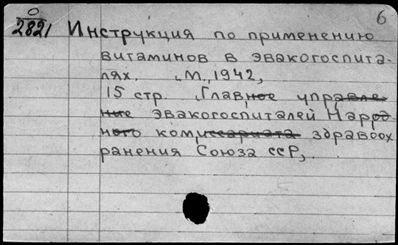 6
0
2821 Инструкция по применению
витаминов в эвакогоспита-
лях. М., 1942,
15 стр. Главное управле-
ние эвакогоспиталей Народ-
ного комиссариата здравоох
ранения Союза ССР,.